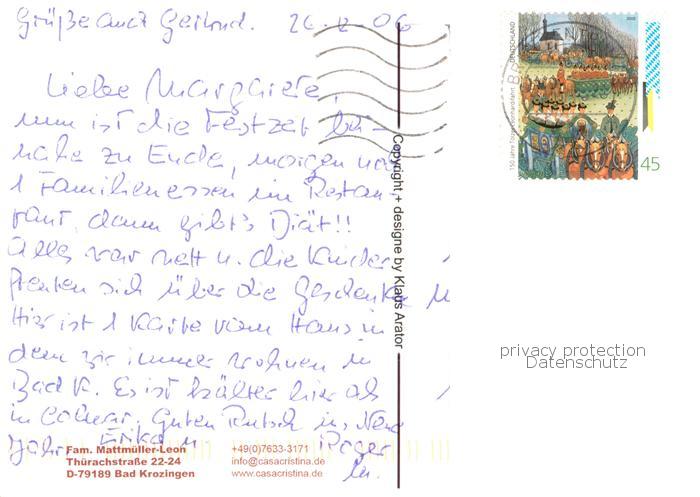 Grüße auch Gertrud. 26-2-06
Liebe Margarete,
nun ist die Festzeit bei-
nahe zu Ende, morgen noch
1 Familienessen im Restau-
rant, dann gibt's Diät!!
Alles war nett u. die Kinder
freuten sich über die Geschenke
Hier ist 1 Karte vom Haus in
dem wir immer wohnen in
Bad K. Es ist kälter hier als
in Colmar. Guten Rutsch ins Neue
Jahr Erika u. Roger
Fam. Mattmüller-Leon
Thürachstraße 22-24
D-79189 Bad Krozingen
+49(0)7633-3171
info@casacristina.de
www.casacristina.de
Copyright + designe by Klaus Arator
DEUTSCHLAND
150 Jahre Tölzer Leonhardifahrt
45
privacy protection
Datenschutz